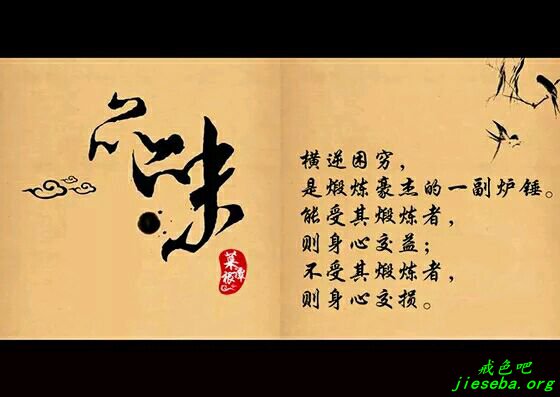 品味
菜根谭
横逆困穷，
是煅炼豪杰的一副炉锤。
能受其煅炼者，
则身心交益；
不受其煅炼者，
则身心交损。
戒色吧
jieseba.org